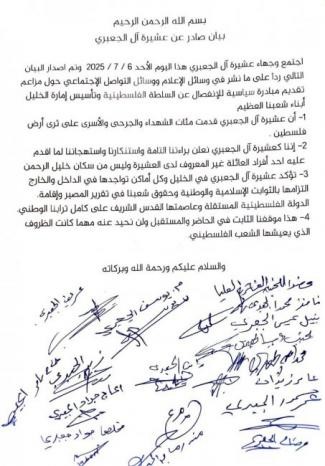 بسم الله الرحمن الرحيم
بيان صادر عن عشيرة آل الجعبري
اجتمع وجهاء عشيرة آل الجعبري هذا اليوم الأحد 6 / 7 / 2025 وتم اصدار البيان
التالي رداً على ما نشر في وسائل الإعلام ووسائل التواصل الإجتماعي حول مزاعم
تقديم مبادرة سياسية للإنفصال عن السلطة الفلسطينية وتأسيس إمارة الخليل
أبناء شعبنا العظيم
1- أن عشيرة آل الجعبري قدمت مئات الشهداء والجرحى والأسرى على ثرى أرض
فلسطين .
2- إننا كعشيرة آل الجعبري نعلن براءتنا التامة واستنكارنا واستهجاننا لما اقدم
عليه احد أفراد العائلة غير المعروف لدى العشيرة وليس من سكان خليل الرحمن
3- تؤكد عشيرة آل الجعبري في الخليل وكل أماكن تواجدها في الداخل والخارج
التزامها بالثوابت الإسلامية والوطنية وحقوق شعبنا في تقرير المصير وإقامة
الدولة الفلسطينية المستقلة وعاصمتها القدس الشريف على كامل ترابنا الوطني.
4- هذا موقفنا الثابت في الحاضر والمستقبل ولن نحيد عنه مهما كانت الظروف
الذي يعيشها الشعب الفلسطيني.
والسلام عليكم ورحمة الله وبركاته